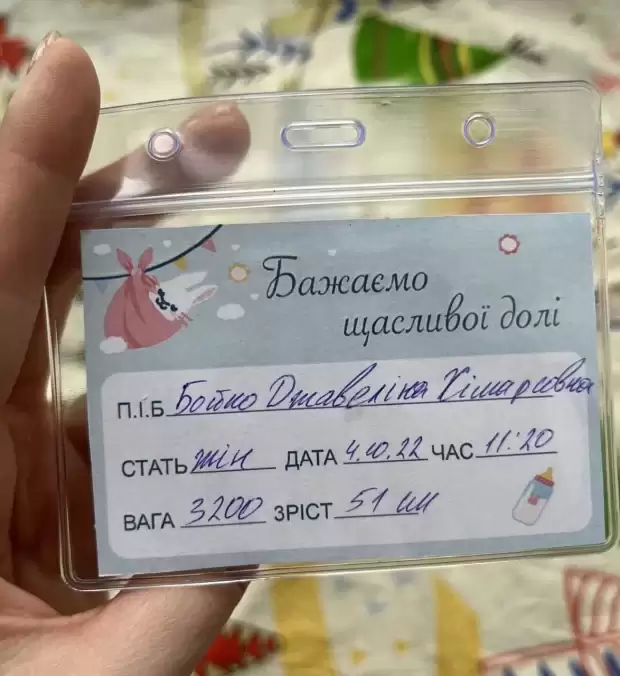 Бажаємо
щасливої долі
П.І.Б Бойко Джавеліна Хімарсовна
СТАТЬ жін ДАТА 4.10.22 ЧАС 11:20
ВАГА 3200 ЗРІСТ 51 см